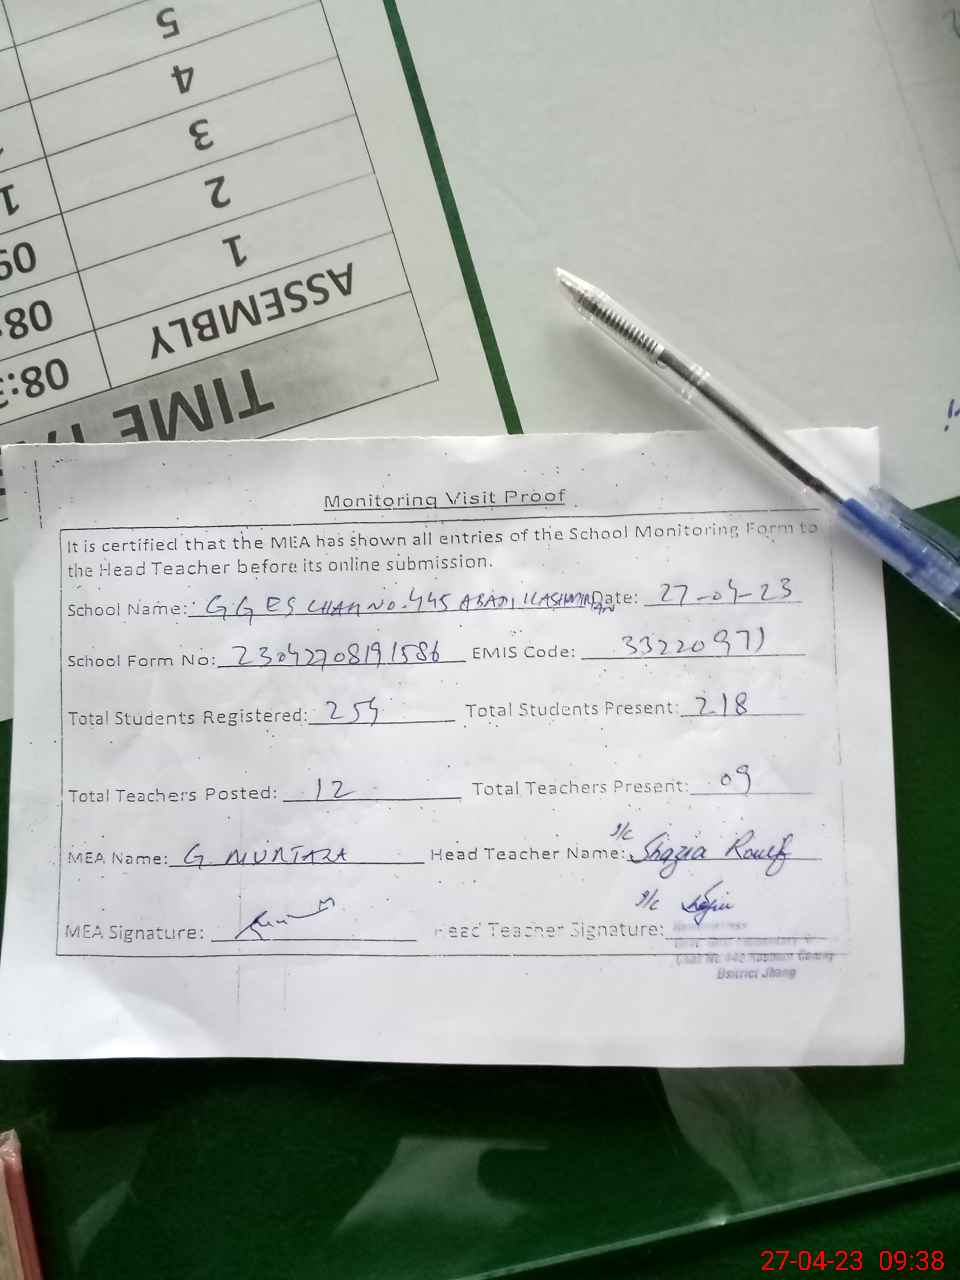 5
4
3
2
1
ASSEMBLY
09
08:
08:3
TIME TA
Monitoring Visit Proof
It is certified that the MEA has shown all entries of the School Monitoring Form to
the Head Teacher before its online submission.
School Name: GGES CHAK NO. 445 ABADI KASHMIRIAN Date: 27-04-23
School Form No: 23042708191586 EMIS Code: 33220971
Total Students Registered: 254 Total Students Present: 218
Total Teachers Posted: 12 Total Teachers Present: 09
MEA Name: G. MURTAZA Head Teacher Name: I/C Shazia Rouf
MEA Signature: Head Teacher Signature: I/C
District Jhang
27-04-23 09:38